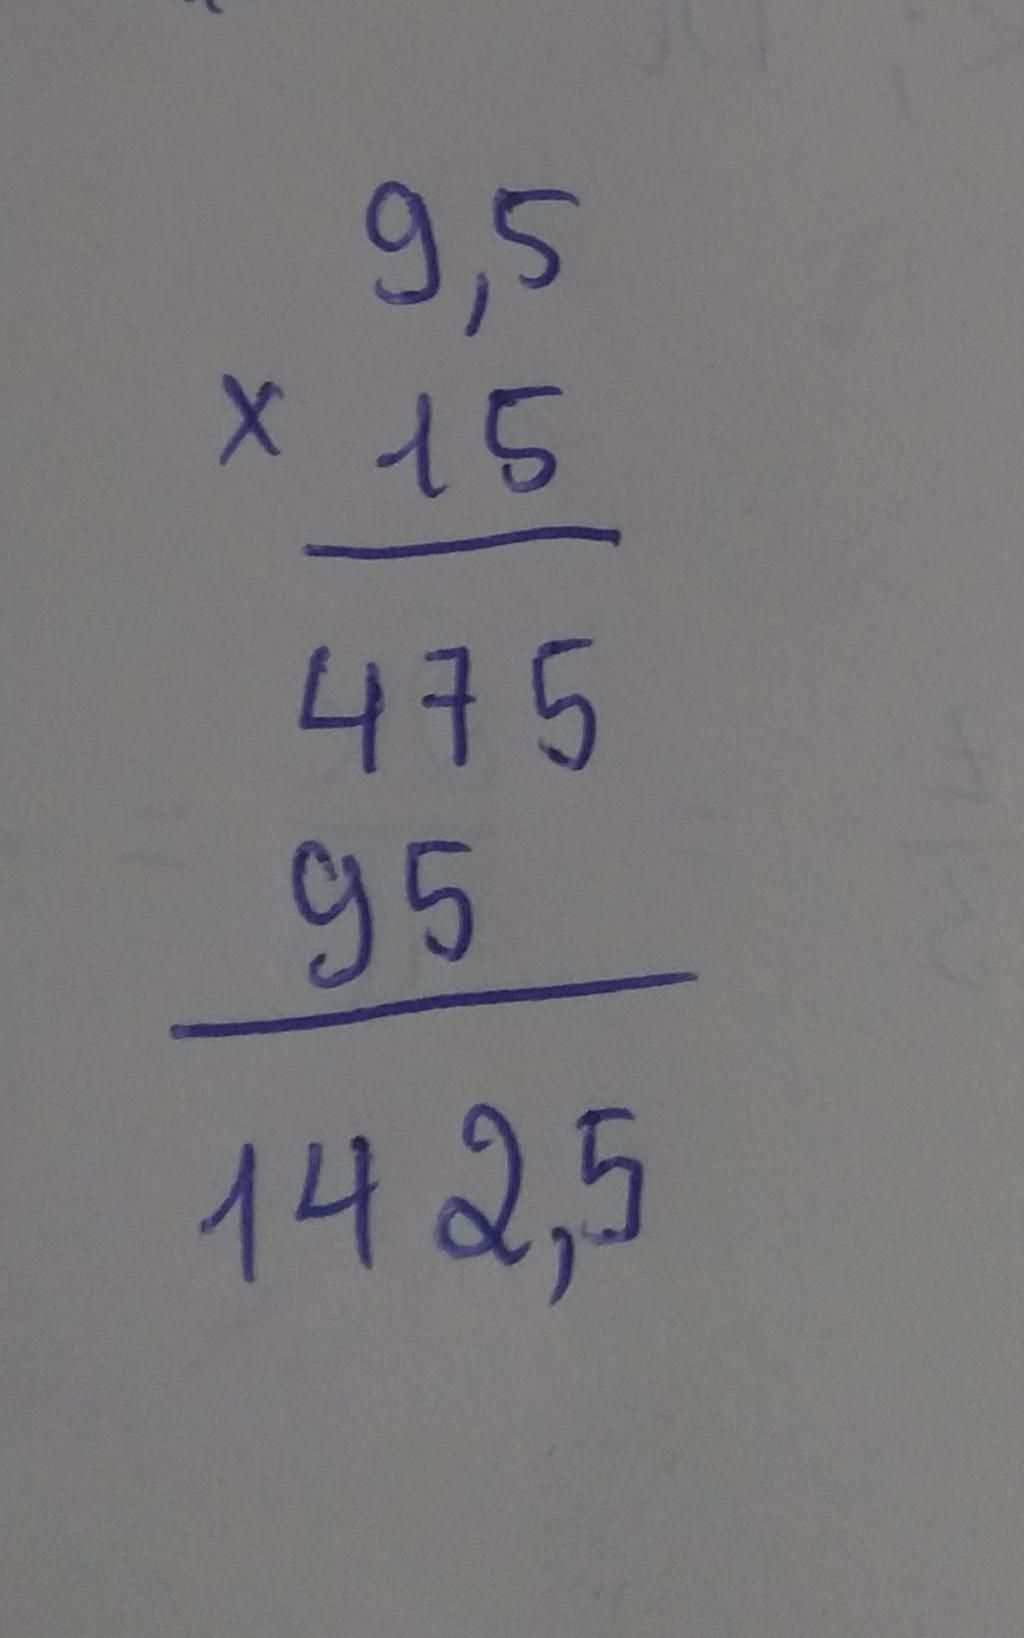 9,5
x 15
475
95
142,5